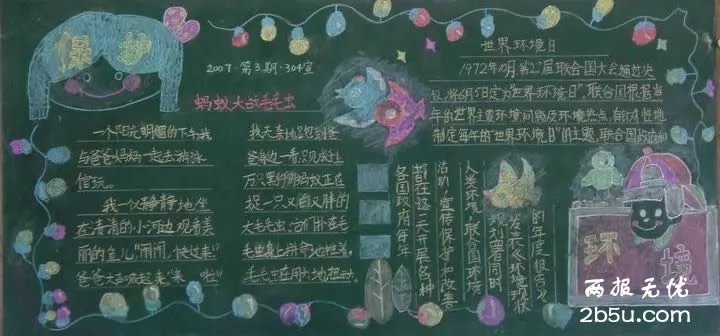 保护
2007·第3期·304室
蚂蚁大战毛毛虫
一个阳光明媚的下午我
与爸爸妈妈一起去游泳
馆玩。
我一人静静地坐
在清清的小河边观看美
丽的鱼儿"闹闹,快过来"
爸爸大声喊起来"来 啦"
我飞奔地跑到爸
爸身边一看,只见成千上
万只黑蚂蚁正在
捉一只又白又胖的
大毛毛虫,它们扑在毛
毛虫身上拼命地推着,
毛毛虫在用力地扭动。
世界环境日
1972年10月第27届联合国大会通过决
议,将6月5日定为"世界环境日",联合国根据当
年的世界主要环境问题及环境热点,有针对性地
制定每年的"世界环境日"的主题,联合国的
各国政府每年
都在这一天开展各种
活动,宣传保护和改善
人类环境,联合国环境
规划署同时
发表《环境现状
的年度报告》
环境
两报无优
2b5u.com